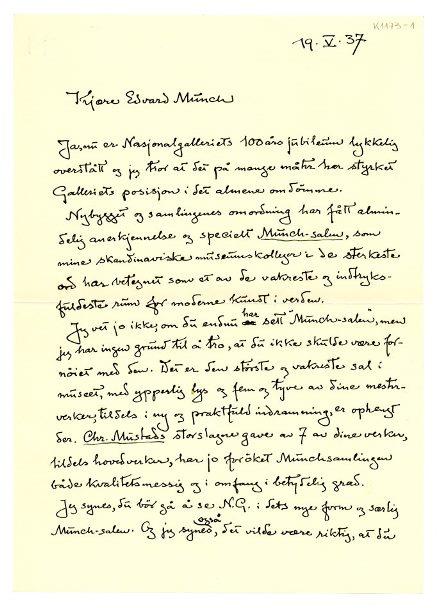 K1173-1
19.V.37
Kjære Edvard Munch
Ja, nu er Nasjonalgalleriets 100 års jubileum lykkelig
overstått og jeg tror at det på mange måter har styrket
Galleriets posisjon i det almene omdømme.
Nybygget og samlingenes omordning har fått almin-
delig anerkjennelse og specielt Munch-salen, som
mine skandinaviske museumskolleger i de sterkeste
ord har betegnet som et av de vakreste og indtryks-
fuldeste rum for moderne kunst i verden.
Jeg vet jo ikke, om du endnu har sett "Munch-salen", men
jeg har ingen grund til å tro, at du ikke skulde være for-
nöiet med den. Det er den störste og vakreste sal i
museet, med ypperlig lys og fem og tyve av dine mester-
verker, tildels i ny og praktfuld indramning, er ophengt
der. Chr. Mustads storslagne gave av 7 av dine verker,
tildels hovedverker, har jo foröket Munchsamlingen
både kvalitetsmessig og i omfang i betydelig grad.
Jeg synes, du bör gå å se N.G. i dets nye form og særlig
Munch-salen. Og jeg synes også, det vilde være riktig, at du